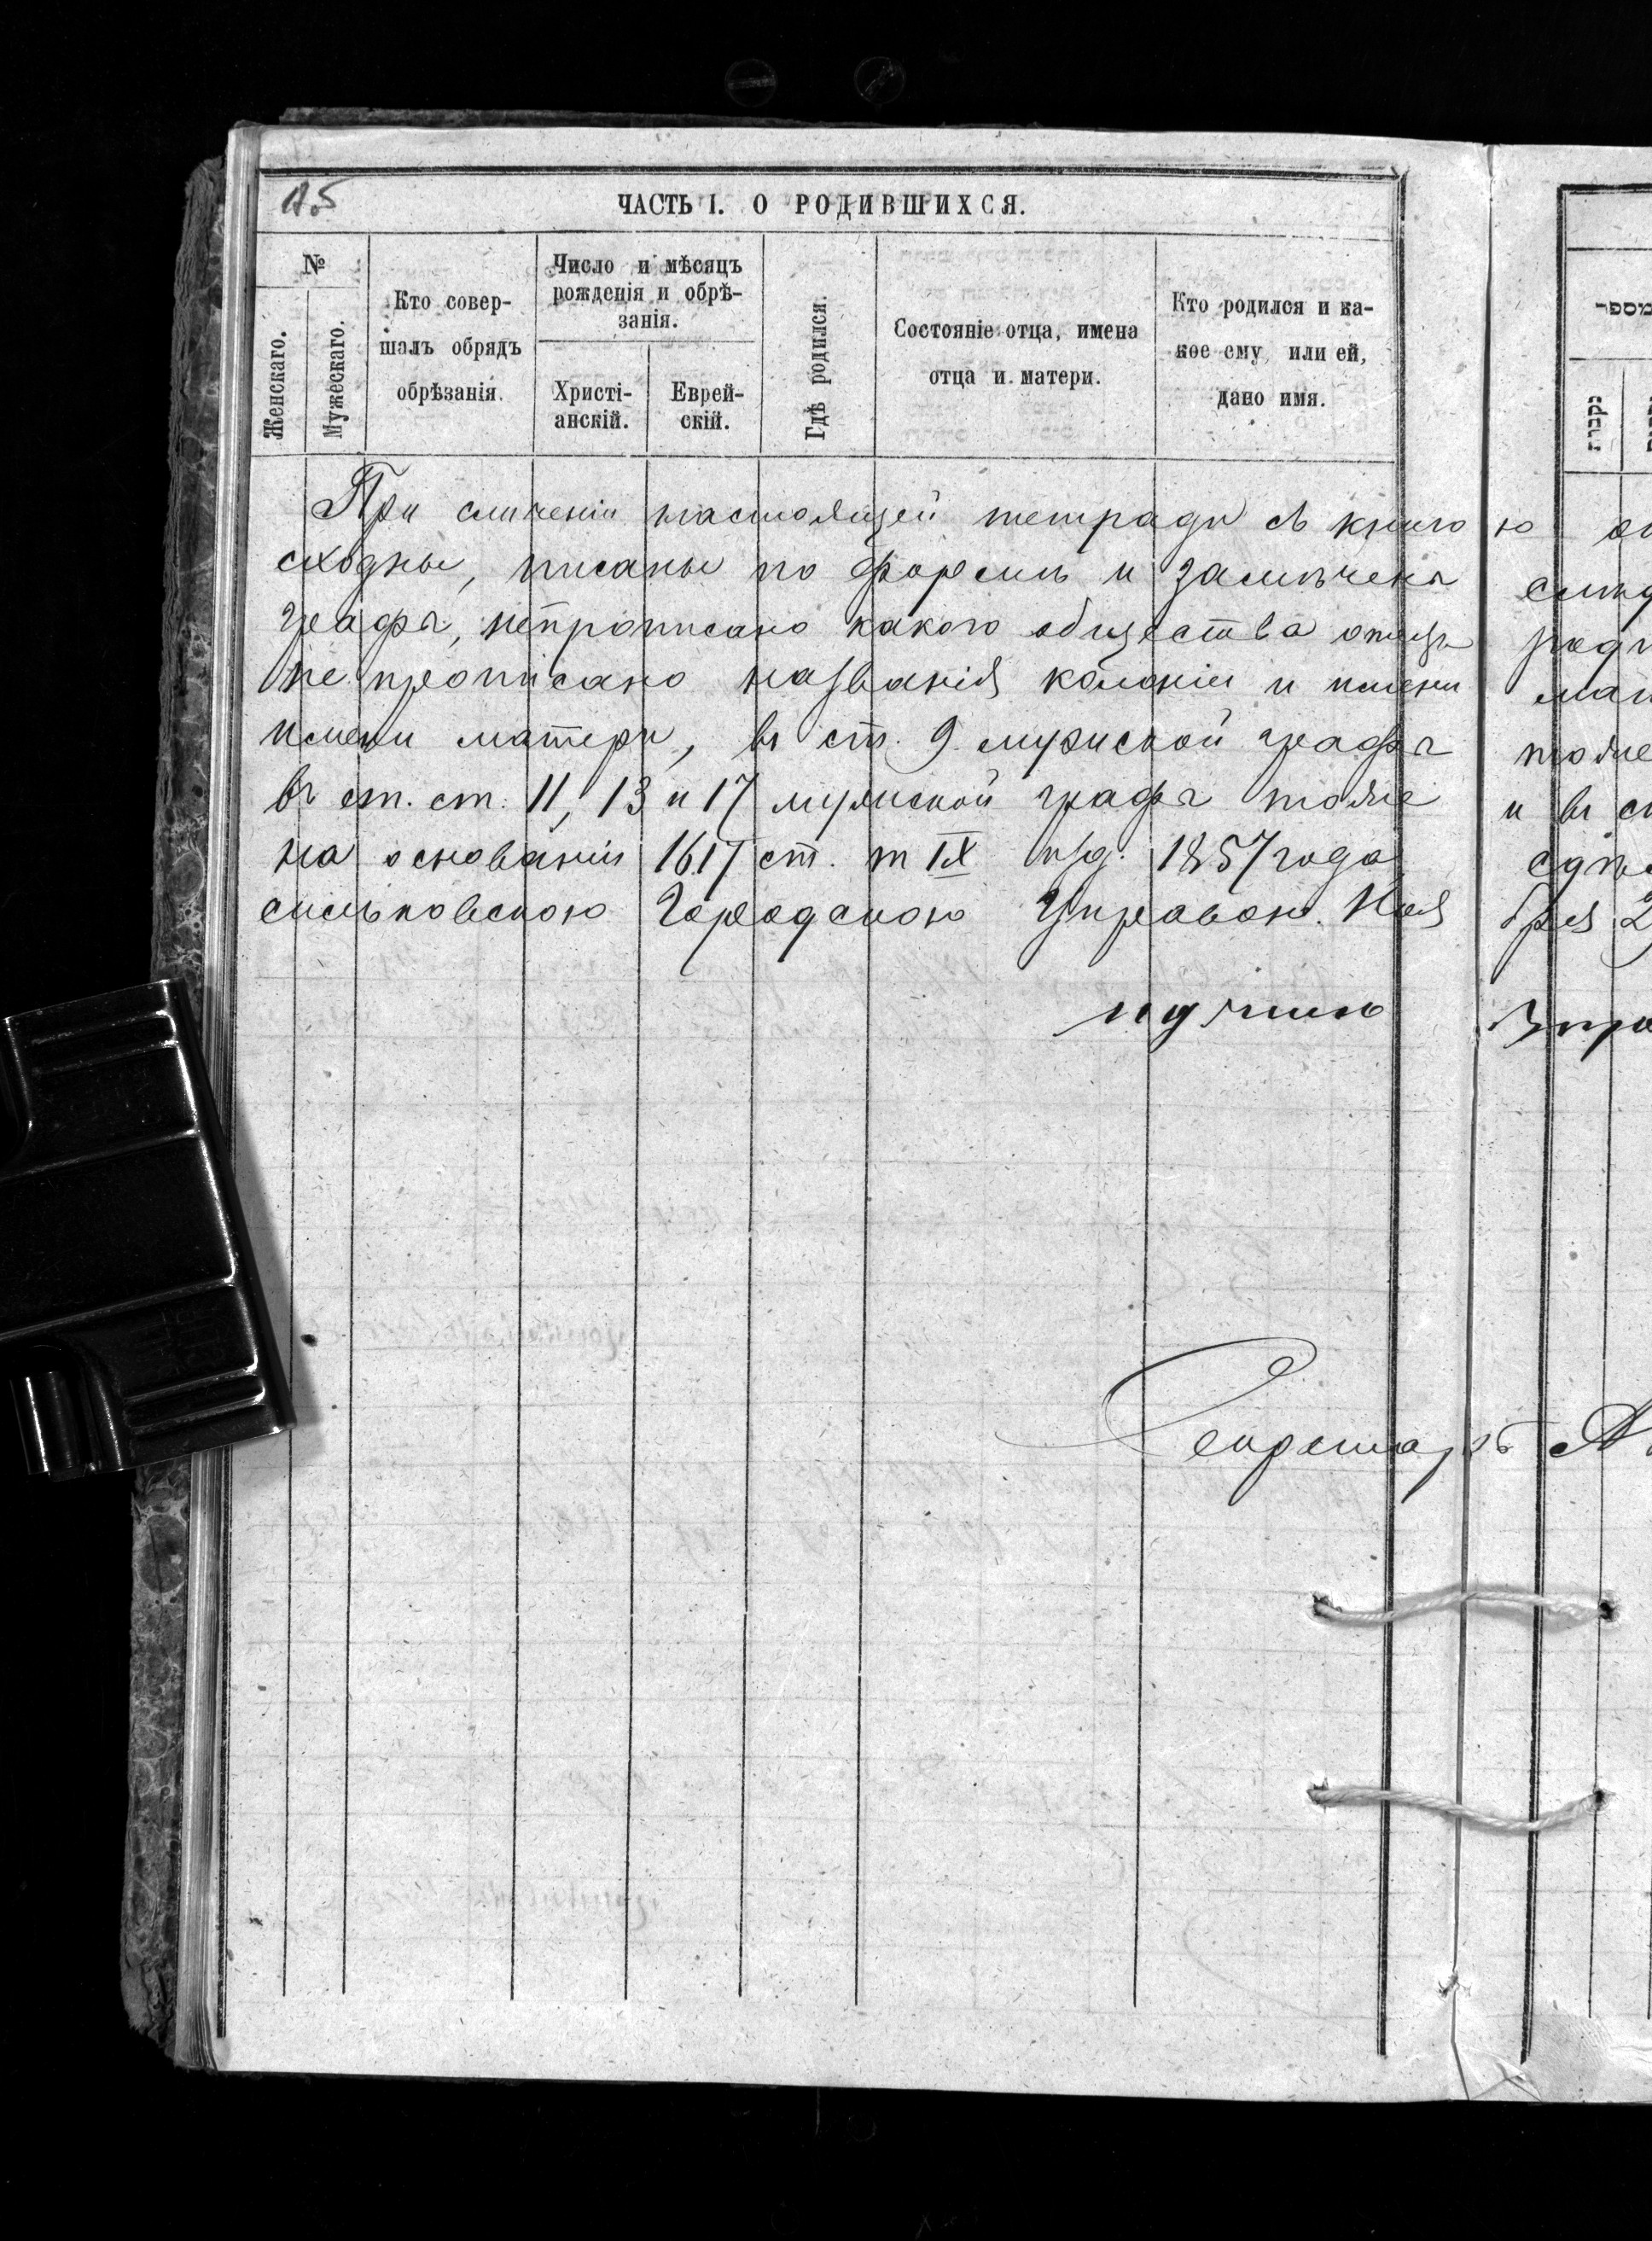 ЧАСТЬ I. О РОДИВШИХСЯ.
№
Женскаго.
Мужескаго.
Кто совер-
шалъ обрядъ
обрѣзанія.
Число и мѣсяцъ
рожденія и обрѣ-
занія.
Христі-
анскій.
Еврей-
скій.
Гдѣ родился.
Состояніе отца, имена
отца и матери.
Кто родился и ка-
кое ему, или ей,
дано имя.
מספר
נקבות
При сличеніи настоящей тетради съ книго ю
сходны, писаны по формѣ и замѣчена
графа, непрописано какого общества отецъ
не прописано названія колоніи и имени
имени матери, въ ст. 9 мужской графа
въ ст. ст. 11, 13 и 17 мужской графа тоже и въ
на основаніи 1617 ст. т IX изд. 1857 года
Городскою Управою. Ноя бря 2
Секретарь